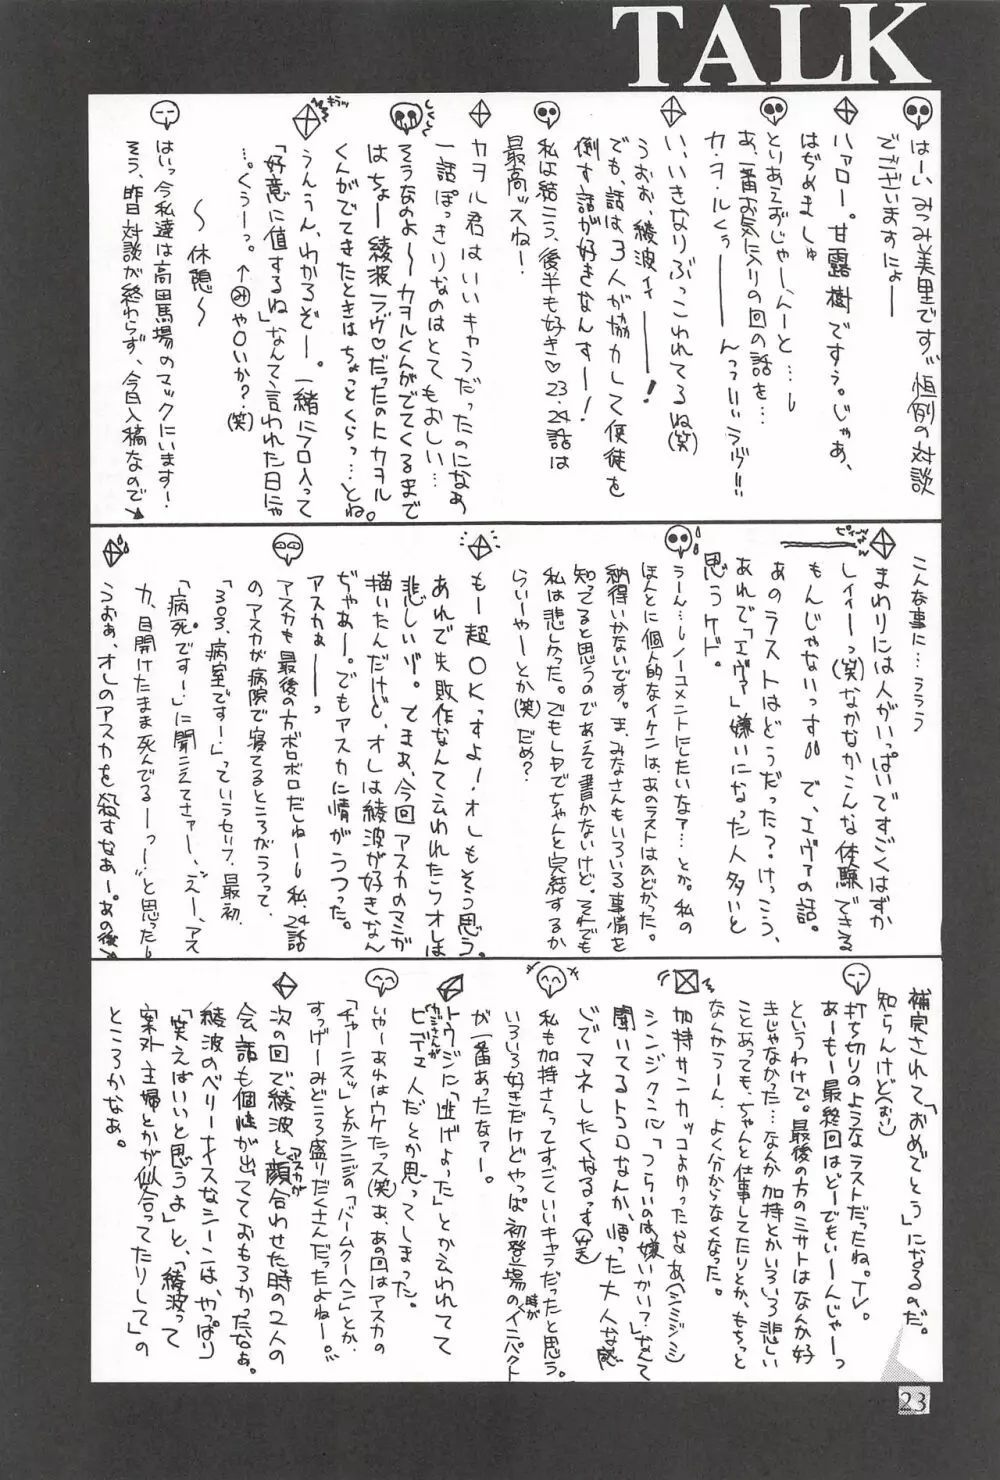 TALK
はーい、みつみ美里です。恒例の対談
でございますにょー
ハァロー。甘露樹ですぅ。じゃあ、
はぢめましゅ
とりあえずじゃーんーと…し
あ、一番お気に入りの回の話を…
カ・ヲ・ルくぅーーんっいぃラヴ!!
い、いきなりぶっこわれてるね(笑)
うおぉ、綾波ィーーー!
でも、話は3人が協力して使徒を
倒す話が好きなんすー!
私は結こう、後半も好き♡23、24話は
最高ッスねー!
カヲル君はいいキャラだったのになぁ
一話ぽっきりなのはとてもおしい…
そうなのよ〜〜カヲルくんがでてくるまで
はちょー綾波ラヴ♡だったのにカヲル
くんがでてきたときはちょっとくらっ…とね。
うんうん、わかるぞー。一緒にフロ入って
「好意に値するね」なんて言われた日にゃ
…。くぅーっ。↑みや○いか?(笑)
〜休憩〜
はいっ今私達は高田馬場のマックにいます!
そう、昨日対談が終わらず、今日入稿なので
こんな事に…ううう
まわりには人がいっぱいですごくはずか
しィィーっ(笑)なかなかこんな体験できる
もんじゃないっす で、エヴァの話。
あのラストはどうだった?けっこう、
あれで「エヴァ」嫌いになった人多いと
思うケド。
うーん…しノーコメントにしたいなァ…とか。私の
ほんとに個人的なイケンは、あのラストはひどかった。
納得いかないです。ま、みなさんもいろいろ事情を
知ってると思うのであえて書かないけど。それでも
私は悲しかった。でもLDでちゃんと完結するか
らいーやーとか(笑)だめ?
もー超OKっすよ!オレもそう思う。
あれで失敗作なんて云われたらオレは
悲しいゾ。でまぁ、今回アスカのマンガ
描いたんだけど、オレは綾波が好きなん
ぢゃあー。でもアスカに情がうつった。
アスカぁーーっ
アスカも最後の方ボロボロだしねーーし私、24話
のアスカが病院で寝てるところがうつって、
「303、病室ですー」っていうセリフ、最初、
「病死ですー」に聞こえてさァー、ズーー、アス
カ、目開けたまま死んでるーーっー!と思ったし
うおぁ、オレのアスカを殺すなぁー。あの後
補完されて「おめでとう」になるのだ。
知らんけど(おい)
打ち切りのようなラストだったね。TV。
あーもー最終回はどーでもいーんじゃーっ
というわけで。最後の方のミサトはなんか好
きじゃなかった…なんか加持とかいろいろ悲しい
ことあっても、ちゃんと仕事してたりとか、もちっと
なんかうーん、よく分からなくなった。
加持サンカッコよかったなあ(シミジミ)
シンジクンに「つらいのは嫌いかい?」なんて
聞いてるトコロなんか、悟った大人な感
じでマネしたくなるっす(笑)
私も加持さんってすごくいいキャラだったと思う。
いろいろ好きだけどやっぱ初登場の時がインパクト
が一番あったなァー。
トウジに「逃げよった」とか云われてて
ヒデェ人だとか思ってしまった。
いやーあれはウケたっス(笑)あ、あの回はアスカの
「チャーンスッ」とかシンジの「バームクーヘン」とか、
すっげーみどころ盛りだくさんだったよねー。
次の回で、綾波とアスカが顔合わせた時の2人の
会話も個性が出てておもろかったなぁ。
綾波のベリーナイスなシーンは、やっぱり
「笑えばいいと思うよ」と、「綾波って
案外、主婦とかが似合ってたりして」の
ところかなぁ。
23